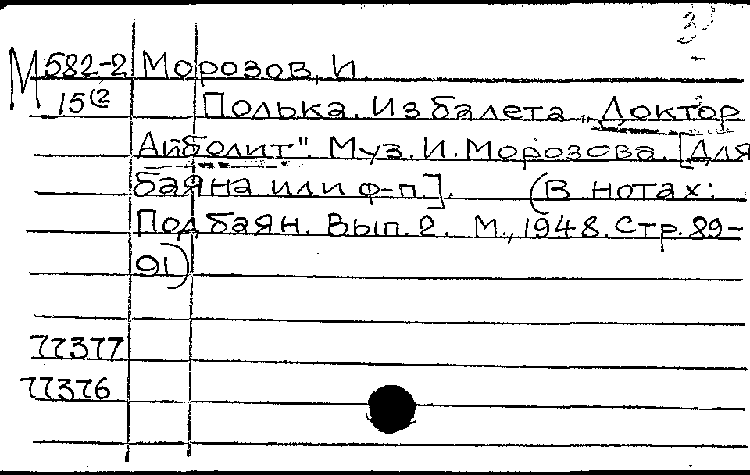 3
М 582-2 Морозов, И
15(2 Полька. Из балета „Доктор
Айболит". Муз. И. Морозова. [Для
баяна или ф-п.]. (В нотах:
Под баян. Вып. 2. М., 1948. Стр. 89-
91)
77377
77376